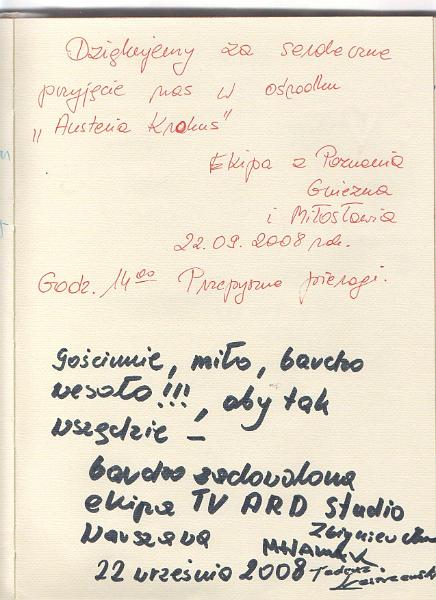 Dziękujemy za serdeczne
przyjęcie nas w ośrodku
„Austeria Krokus"
Ekipa z Poznania
Gniezna
i Miłosławia
22.09.2008 rok.
Godz. 14⁰⁰ Przepyszne pierogi.
Gościnnie, miło, bardzo
wesoło!!!, aby tak
wszędzie –
bardzo zadowolona
ekipa TV ARD Studio
Warszawa Zbigniew
22 września 2008 Tadeusz